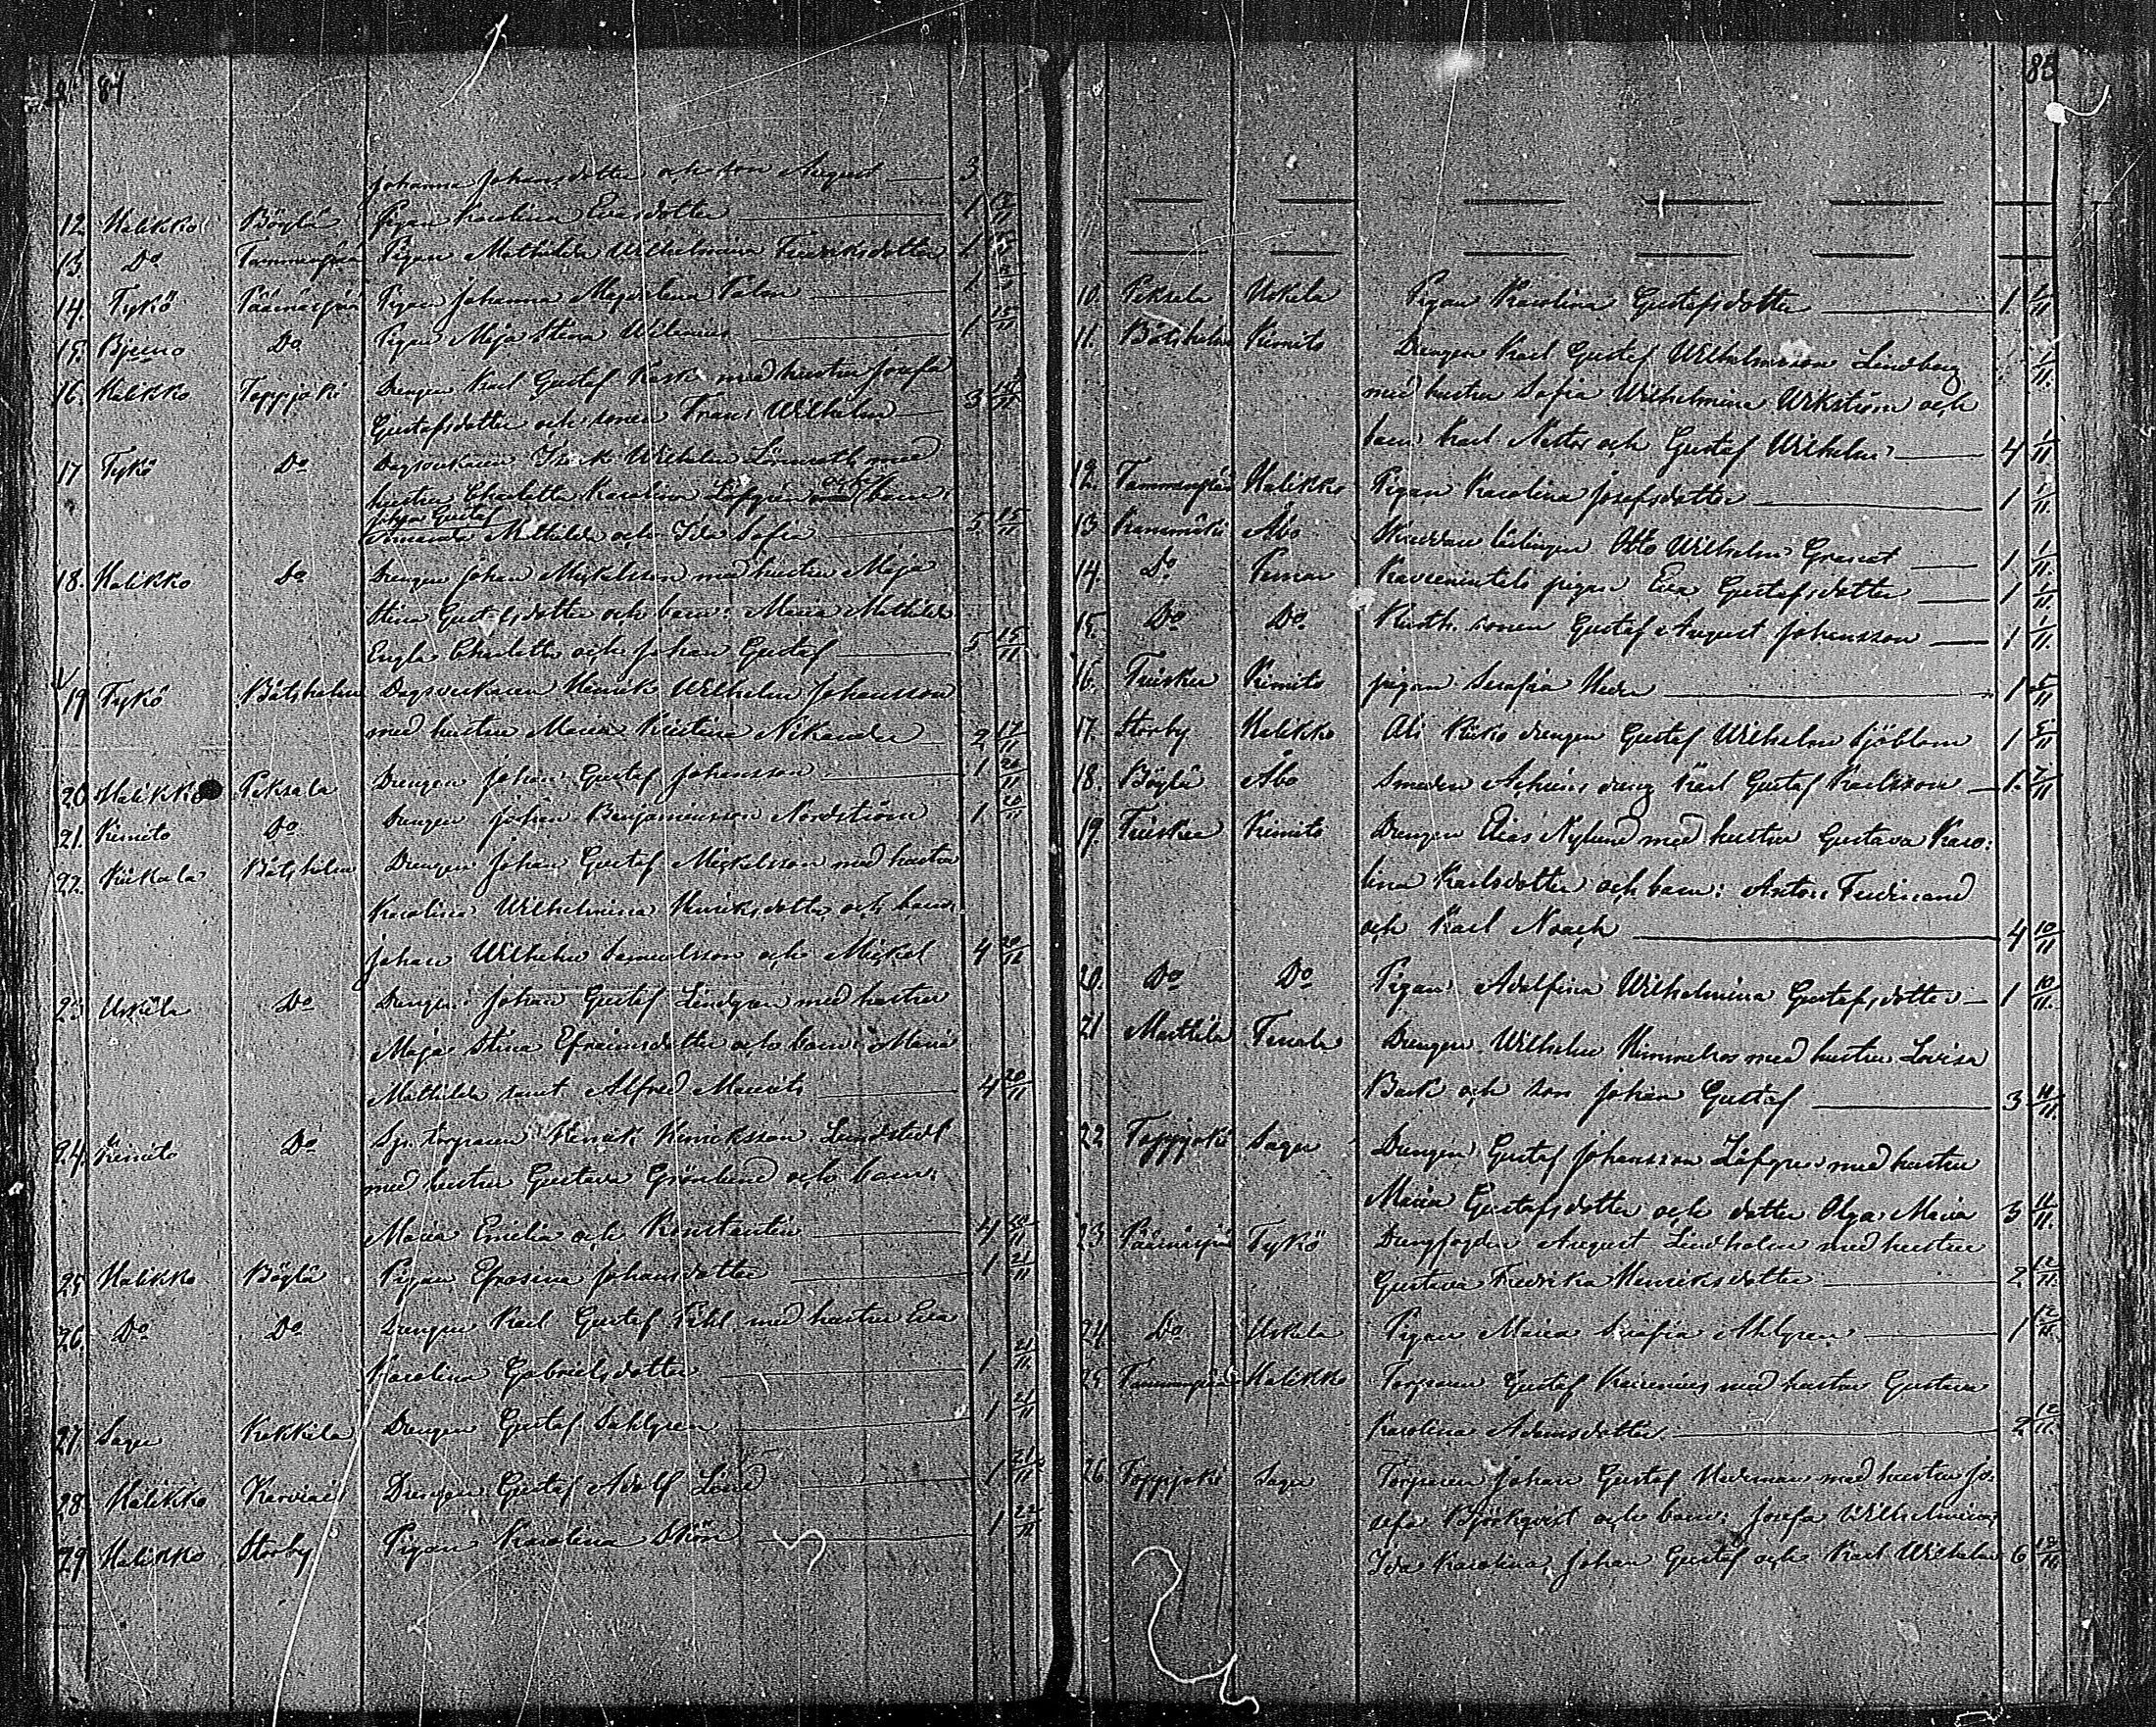 84
Johanna Johansdotter och son August 3
12. Halikko Böglä Pigan Karolina Evasdotter 1
13. Do Tammenpää Pigan Mathilda Wilhelmina Fredriksdotter 1
14. Tykö Päärnäspää Pigan Johanna Magdalena Palm 1
15. Bjerno Do Pigan Maja Stina Wilenius 1 15/11
16. Halikko Toppjoki Drengen Karl Gustaf Kask med hustru Josefa
Gustafsdotter och sonen Frans Wilhelm 3
17 Tykö Do Dagsverkaren Isak Wilhelm Lönnroth med
hustru Charlotta Karolina Löfgren och barn:
Johan Gustaf
Amanda Mathilda och Ida Sofia 5 15/11
18. Halikko Do Drengen Johan Mickelsson med hustru Maja
Stina Gustafsdotter och barn: Maria Mathilda
Engla Charlotta och Johan Gustaf 5 15/11
19 Tykö Båtsholm Dagsverkaren Henrik Wilhelm Johansson
med hustru Maria Kristina Nikander 2 17/11
20 Halikko Peksala Drengen Johan Gustaf Johansson 1 20/11
21. Kimito Do Drengen Johan Benjaminsson Nordström 1 20/11
22. Kiikala Båtsholm Drengen Johan Gustaf Mickelsson med hustru
Karolina Wilhelmina Henriksdotter och barn
Johan Wilhelm Samuelsson och Mickel 4 20/11
23. Uskela Do Drengen Johan Gustaf Lindgren med hustru
Maja Stina Efraimsdotter och barn: Maria
Mathilda samt Alfred Maurits 4 20/11
24. Kimito Do Sp. torparen Henrik Henriksson Lundstedt
med hustru Gustava Grönlund och barn:
Maria Emilia och Konstantin 4 20/11
25 Halikko Böglä Pigan Efrosina Johansdotter 1 21/11
26. Do Do Drengen Karl Gustaf Pihl med hustru Eva
Karolina Gabrielsdotter 1 21/11
27 Sagu Kekkila Drengen Gustaf Sahlgren 1 21/11
28. Halikko Karviais Drengen Gustaf Adolf Lönd 1 21/11
29. Halikko Storby Pigan Karolina Skön 1 22/11
85
10. Peksala Uskela Pigan Karolina Gustafsdotter 1. 1/11
11. Båtsholm Kimito Drengen Karl Gustaf Wilhelmsson Lindberg
med hustru Sofia Wilhelmina Wikström och
barn Karl Nestor och Gustaf Wilhelm 4 1/11
12. Tammenpää Halikko Pigan Karolina Josefsdotter 1 1/11
13 Åbo Otto Wilhelm Granat 1 1/11
14. Do pigan Eva Gustafsdotter 1 1/11
15. Do Do Rusth. sonen Gustaf August Johansson 1 1/11
16. Tuiskua Kimito pigan Serafia Heder 1 5/11
17. Storby Halikko drengen Gustaf Wilhelm Sjöblom 1
18. Böglä Åbo Smeden dreng Karl Gustaf Karlsson 1 7/11
19. Tuiskua Kimito Drengen Elias Nylund med hustru Gustava Karo:
lina Karlsdotter och barn: Anton Ferdinand
och Karl Noach 4 10/11
20. Do Do Pigan Adolfina Wilhelmina Gustafsdotter 1 10/11
21 Marttila Tenala Drengen Wilhelm Himmelros med hustru Lovisa
Back och son Johan Gustaf 3 11/11
22 Toppjoki Sagu Drengen Gustaf Johansson Löfgren med hustru
Maria Gustafsdotter och dotter Olga Maria 3 11/11
23 Päärnäspää Tykö Drengfogden August Lindholm med hustru
Gustava Fredrika Henriksdotter 2 12/11
24 Do Uskela Pigan Maria Serafia Ahlgren 1 12/11
25 Tammenpää Halikko Torparen Gustaf med hustru Gustava
Karolina Adamsdotter 2 12/11
26 Toppjoki Sagu Torparen Johan Gustaf Hederman med hustru Jo-
sefa Björkqvist och barn: Josefa Wilhelmina,
Ida Karolina, Johan Gustaf och Karl Wilhelm 6 18/11